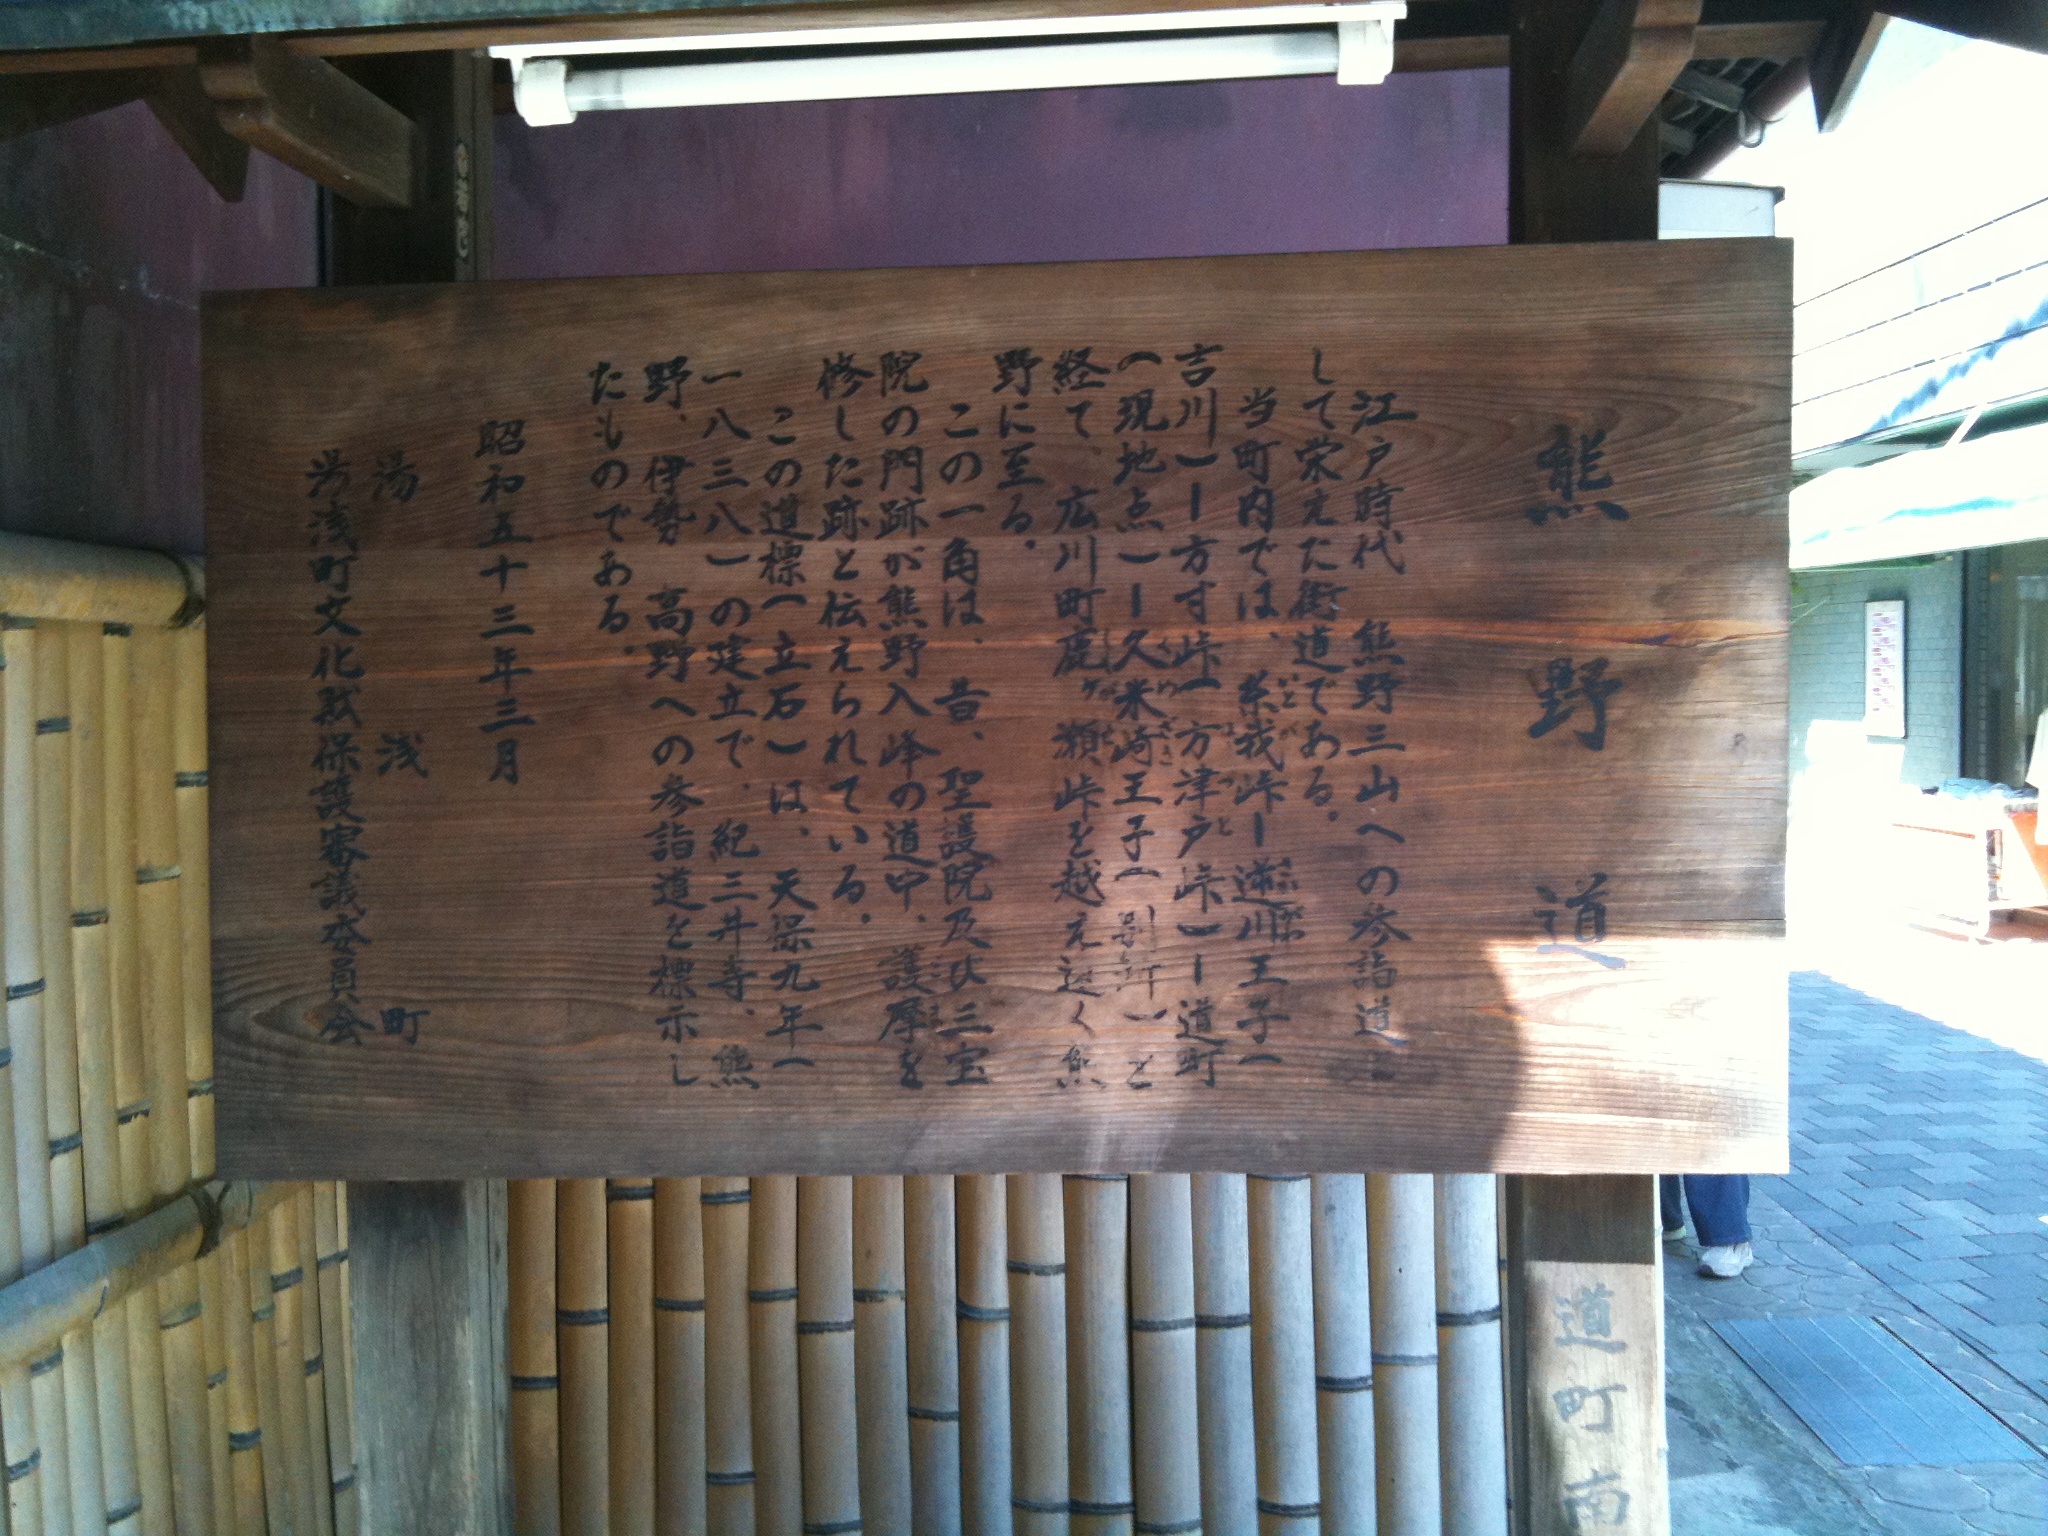 熊野道
江戸時代 熊野三山への参詣道と
して栄えた街道である。
当町内では、糸我峠ー逆川王子(
吉川)ー方寸峠(方津戸峠)ー道町
(現地点)ー久米崎王子(別所)と
経て、広川町鹿ケ瀬峠を越え遠く熊
野に至る。
この一角は、昔、聖護院及び三宝
院の門跡が熊野入峰の道中、護摩を
修した跡と伝えられている。
この道標(立石)は、天保九年(
一八三八)の建立で、紀三井寺、熊
野、伊勢 高野への参詣道を標示し
たものである。
昭和五十三年三月
湯浅町
湯浅町文化財保護審議委員会
道町南